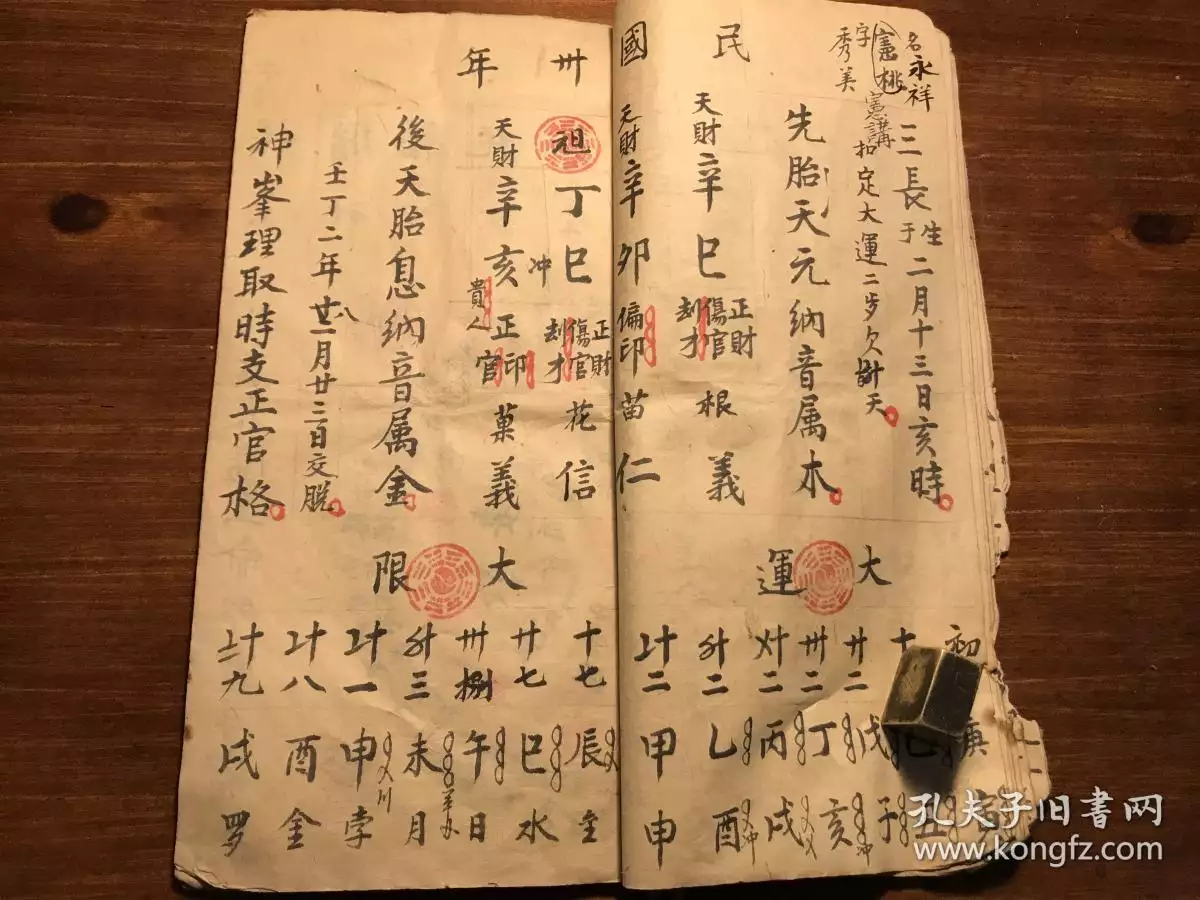 名永祥
字憲桃
秀美
憲講
三長生于二月十三日亥時
扣定大運二岁欠 天
先胎天元納音属木
民國卅年
天財辛巳正財傷官刼才根義
天財辛卯偏印苗仁
祖丁巳正財傷官刼才花信
冲
天財辛亥貴人正印官菓義
後天胎息納音属金
壬丁二年 月廿三日交脱
神峯理取時支正官格
大運
初 庚
十
廿二戊子
卅二丁亥
〤十二丙戌
〥十二乙酉
〦十二甲申
大限
十七辰
廿七巳水
卅捌午日
〥十三未月
〦十一申孛
〦十八酉金
〧十九戌罗
孔夫子旧书网
www.kongfz.com